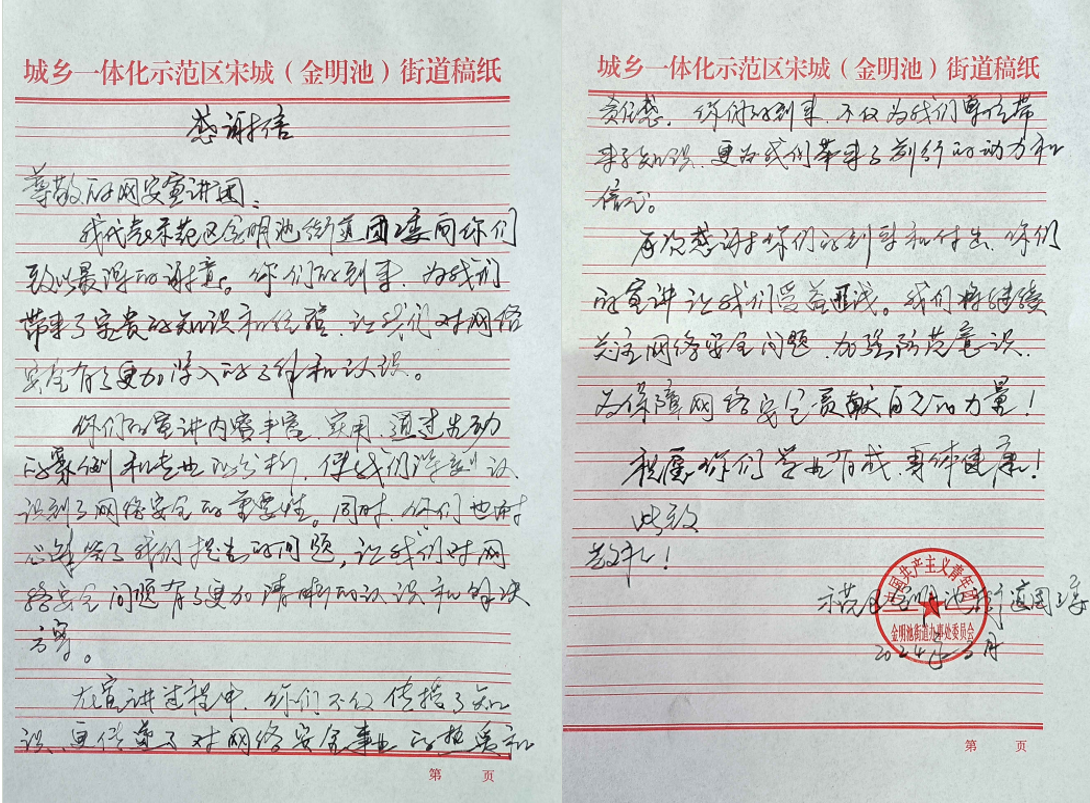 城乡一体化示范区宋城（金明池）街道稿纸
感谢信
尊敬的网安宣讲团：
我代表示范区金明池街道团工委向你们
致以最深的谢意。你们的到来，为我们
带来了宝贵的知识和经验，让我们对网络
安全有了更加深入的了解和认识。
你们的宣讲内容丰富、实用，通过生动
的案例和专业的分析，使我们深刻认
识到了网络安全的重要性。同时，你们也耐
心解答了我们提出的问题，让我们对网
络安全问题有了更加清晰的认识和解决
方案。
在宣讲过程中，你们不仅传授了知
识，更传递了对网络安全事业的热爱和
第 页
城乡一体化示范区宋城（金明池）街道稿纸
责任感。你们的到来，不仅为我们单位带
来了知识，更为我们带来了前行的动力和
信心。
再次感谢你们的到来和付出，你们
的宣讲让我们受益匪浅。我们将继续
关注网络安全问题，加强防范意识，
为保障网络安全贡献自己的力量！
祝愿你们学业有成，身体健康！
此致
敬礼！
示范区金明池街道团工委
中国共产主义青年团
金明池街道办事处委员会
2024年2月
第 页